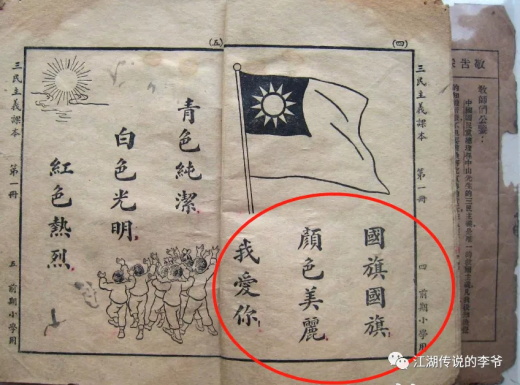 敬告
教師們公鑒：
三民主義課本 第一冊 四 前期小學用
（四）
國旗國旗，
顏色美麗，
我愛你，
（五）
青色純潔，
白色光明，
紅色熱烈，
三民主義課本 第一冊 五 前期小學用
江湖传说的李爷